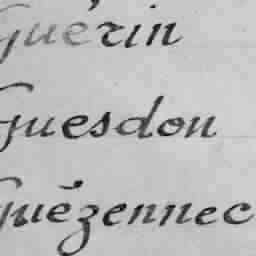 Guérin
Guesdon
Guézennec